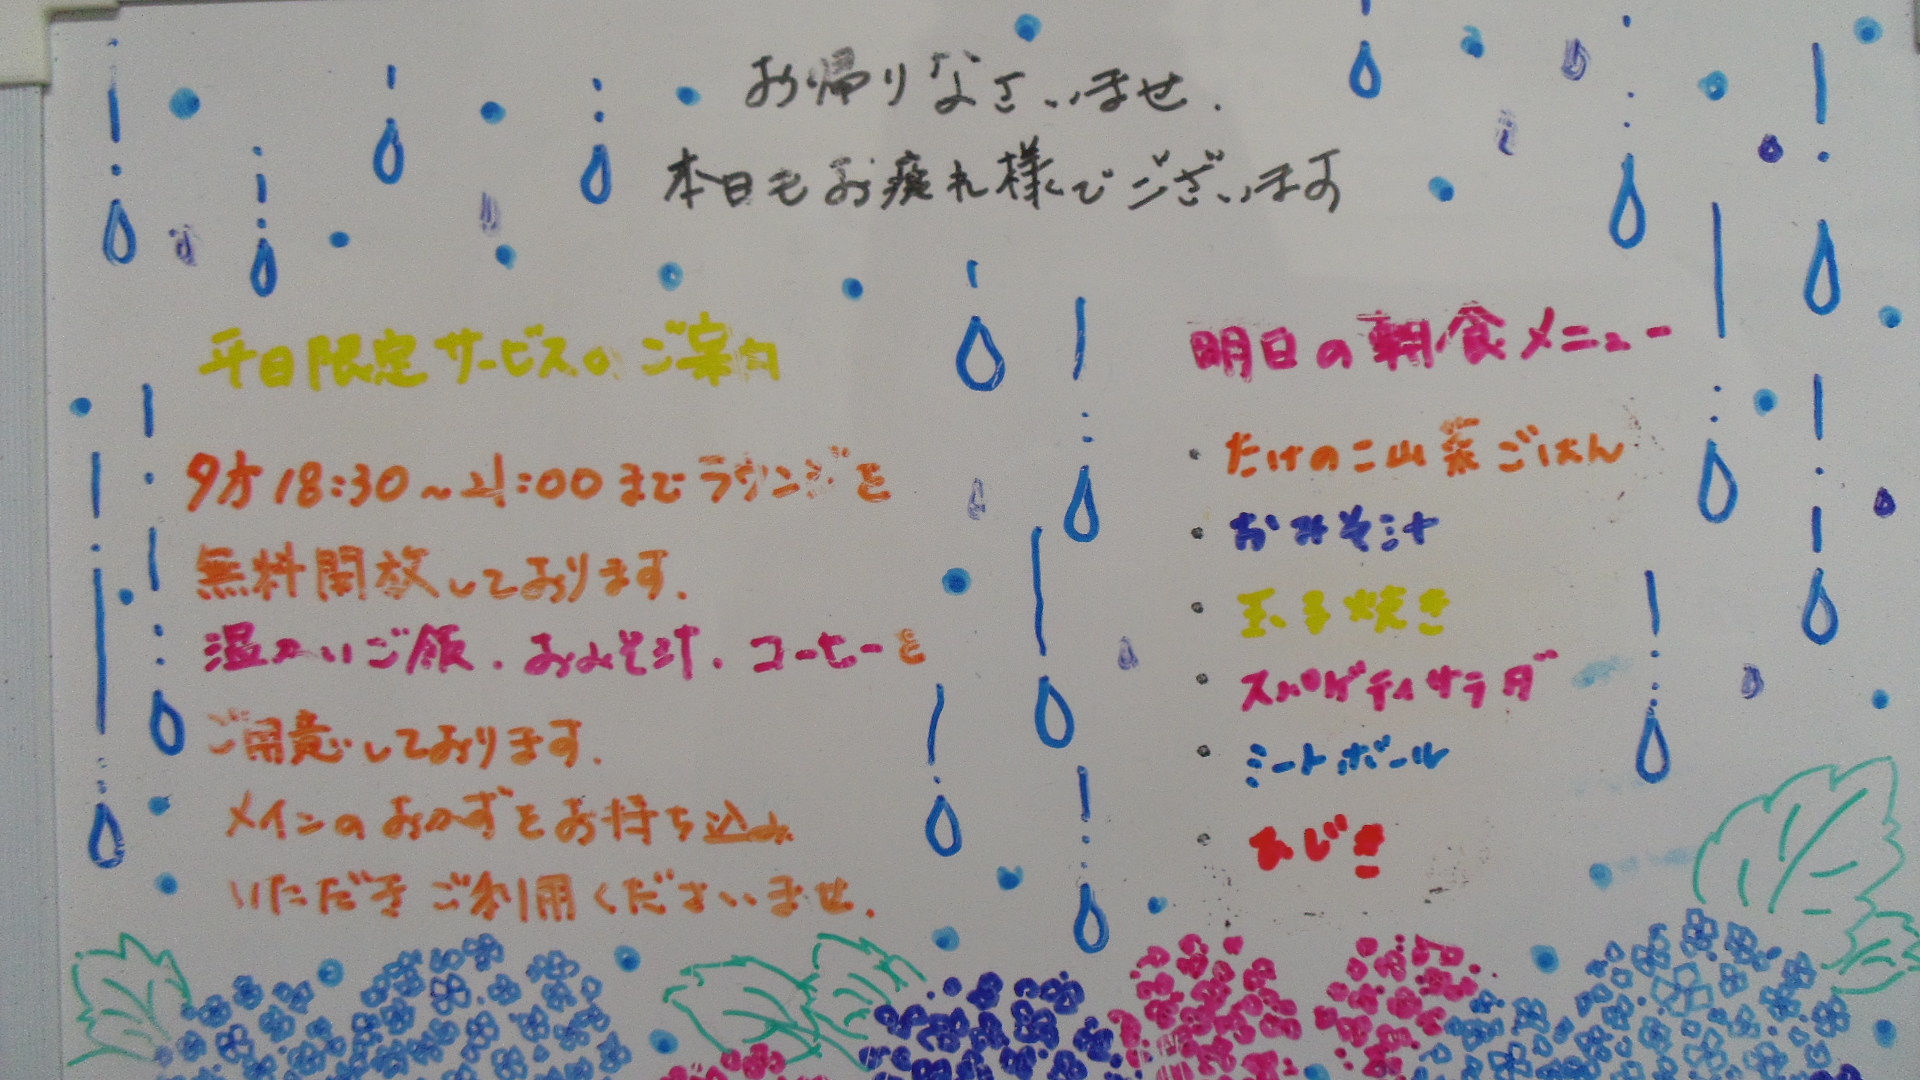 お帰りなさいませ.
本日もお疲れ様でございます
平日限定サービスのご案内
夕方18:30~21:00までラウンジを
無料開放しております.
温かいご飯.おみそ汁.コーヒーを
ご用意しております.
メインのおかずをお持ち込み
いただきご利用くださいませ.
明日の朝食メニュー
・たけのこ山菜ごはん
・おみそ汁
・玉子焼き
・スパゲティサラダ
・ミートボール
・あじき